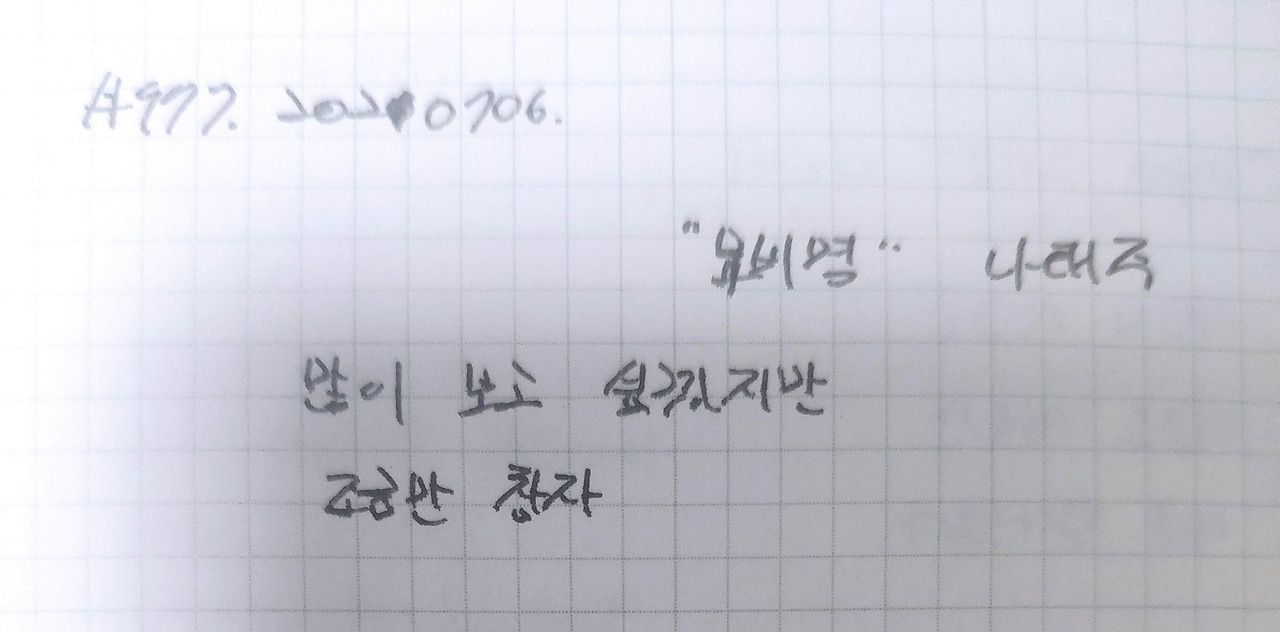 #977. 20210706.
"묘비명" 나태주
많이 보고 싶겠지만
조금만 참자